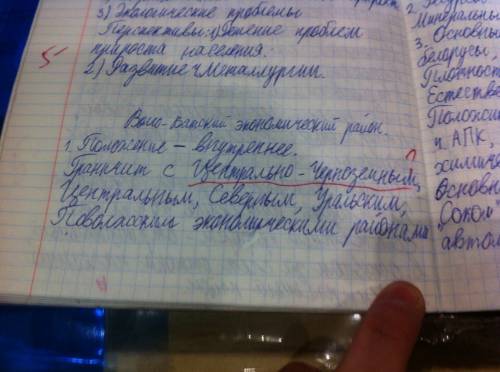 3) Экологические проблемы
Перспективы: 1) Решение проблем
прироста населения.
2) Развитие чМеталлургии.
5
Волго-Вятский экономический район.
1. Положение – внутреннее.
Граничит с Центрально-Черноземным,
?
Центральным, Северным, Уральским,
Поволжским экономическими районами
2.
Минеральны
3. Основны
белорусы,
Плотност
Естестве
Положи
ч АПК,
химиче
Основн
"Сокол"
автом